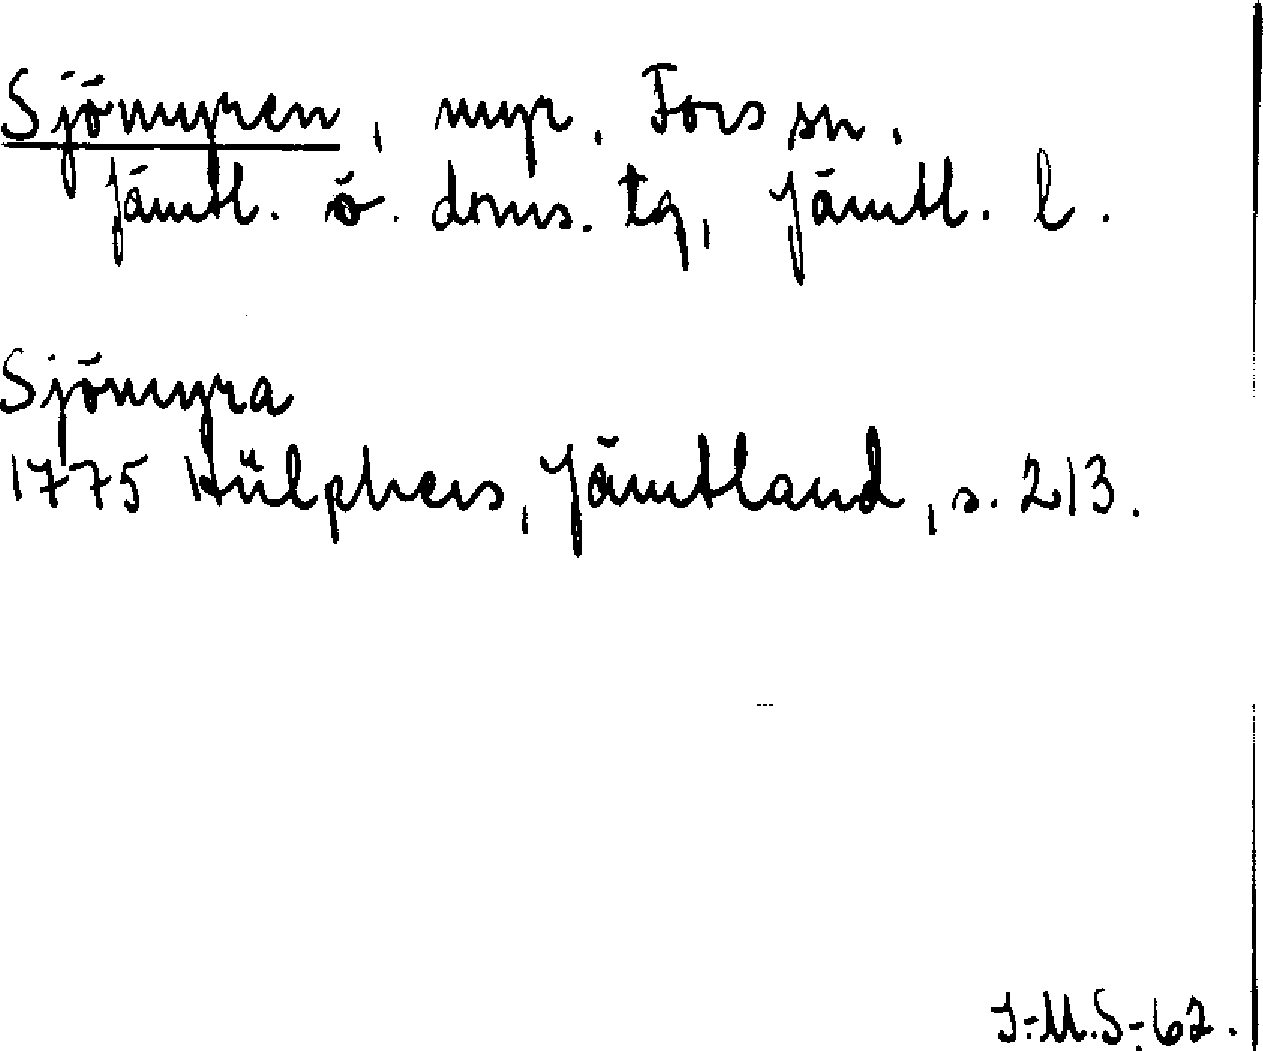 Sjömyren, myr. Fors sn.
Jämtl. ö. doms. tg, Jämtl. l.
Sjömyra
1775 Hülphers, Jämtland, s. 213.
I-M.S-62.